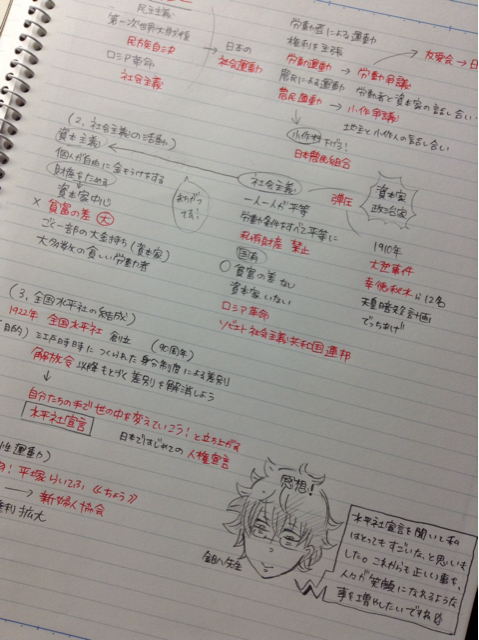 民主主義
第一次世界大戦後
民族自決
ロシア革命
社会主義
→ 日本の
社会運動
労働者による運動
権利を主張
労働運動 → 労働争議 → 友愛会 → 日
農民による運動 労働者と資本家の話し合い
農民運動 → 小作争議
地主と小作人の話し合い
小作料を下げろ!
日本農民組合
(2. 社会主義の活動)
資本主義
個人が自由に金もうけをする
財産をためる
資本家中心
× 貧富の差 大
ごく一部の大金持ち(資本家)
大多数の貧しい労働者
社会主義
一人一人が平等
労働条件をすべて平等に
私有財産 禁止
国有
○ 貧富の差なし
資本家いない
ロシア革命
ソビエト社会主義共和国連邦
弾圧
資本家
政治家
1910年
大逆事件
幸徳秋水ら12名
天皇暗殺計画!
でっちあげ!!
(3. 全国水平社の結成)
1922年 全国水平社 創立 (90周年)
目的) 江戸時代につくられた身分制度による差別
解放令 以降もつづく差別を解消しよう
↓
自分たちの手で世の中を変えていこう!と立ち上がる
水平社宣言 日本ではじめての人権宣言
性運動)
! 平塚らいてう、《ちょう》
→ 新婦人協会
権利拡大
感想!
水平社宣言を聞いて私
はとってもすごいな、と思いま
した。これからも正しい事を、
人々が笑顔になれるような
事を増やしたいですね